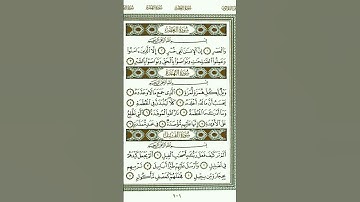 سُورَةُ العَصْرِ
بِسْمِ ٱللَّهِ ٱلرَّحْمَٰنِ ٱلرَّحِيمِ
وَٱلْعَصْرِ ١ إِنَّ ٱلْإِنسَٰنَ لَفِى خُسْرٍ ٢ إِلَّا ٱلَّذِينَ ءَامَنُوا۟
وَعَمِلُوا۟ ٱلصَّٰلِحَٰتِ وَتَوَاصَوْا۟ بِٱلْحَقِّ وَتَوَاصَوْا۟ بِٱلصَّبْرِ ٣
سُورَةُ الهُمَزَةِ
بِسْمِ ٱللَّهِ ٱلرَّحْمَٰنِ ٱلرَّحِيمِ
وَيْلٌ لِّكُلِّ هُمَزَةٍ لُّمَزَةٍ ١ ٱلَّذِى جَمَعَ مَالًا وَعَدَّدَهُۥ ٢
يَحْسَبُ أَنَّ مَالَهُۥٓ أَخْلَدَهُۥ ٣ كَلَّا لَيُنۢبَذَنَّ فِى ٱلْحُطَمَةِ ٤
وَمَآ أَدْرَىٰكَ مَا ٱلْحُطَمَةُ ٥ نَارُ ٱللَّهِ ٱلْمُوقَدَةُ ٦ ٱلَّتِى تَطَّلِعُ
عَلَى ٱلْأَفْـِٔدَةِ ٧ إِنَّهَا عَلَيْهِم مُّؤْصَدَةٌ ٨ فِى عَمَدٍ مُّمَدَّدَةٍۭ ٩
سُورَةُ الفِيلِ
بِسْمِ ٱللَّهِ ٱلرَّحْمَٰنِ ٱلرَّحِيمِ
أَلَمْ تَرَ كَيْفَ فَعَلَ رَبُّكَ بِأَصْحَٰبِ ٱلْفِيلِ ١ أَلَمْ يَجْعَلْ كَيْدَهُمْ
فِى تَضْلِيلٍ ٢ وَأَرْسَلَ عَلَيْهِمْ طَيْرًا أَبَابِيلَ ٣ تَرْمِيهِم
بِحِجَارَةٍ مِّن سِجِّيلٍ ٤ فَجَعَلَهُمْ كَعَصْفٍ مَّأْكُولٍۭ ٥
٦٠١